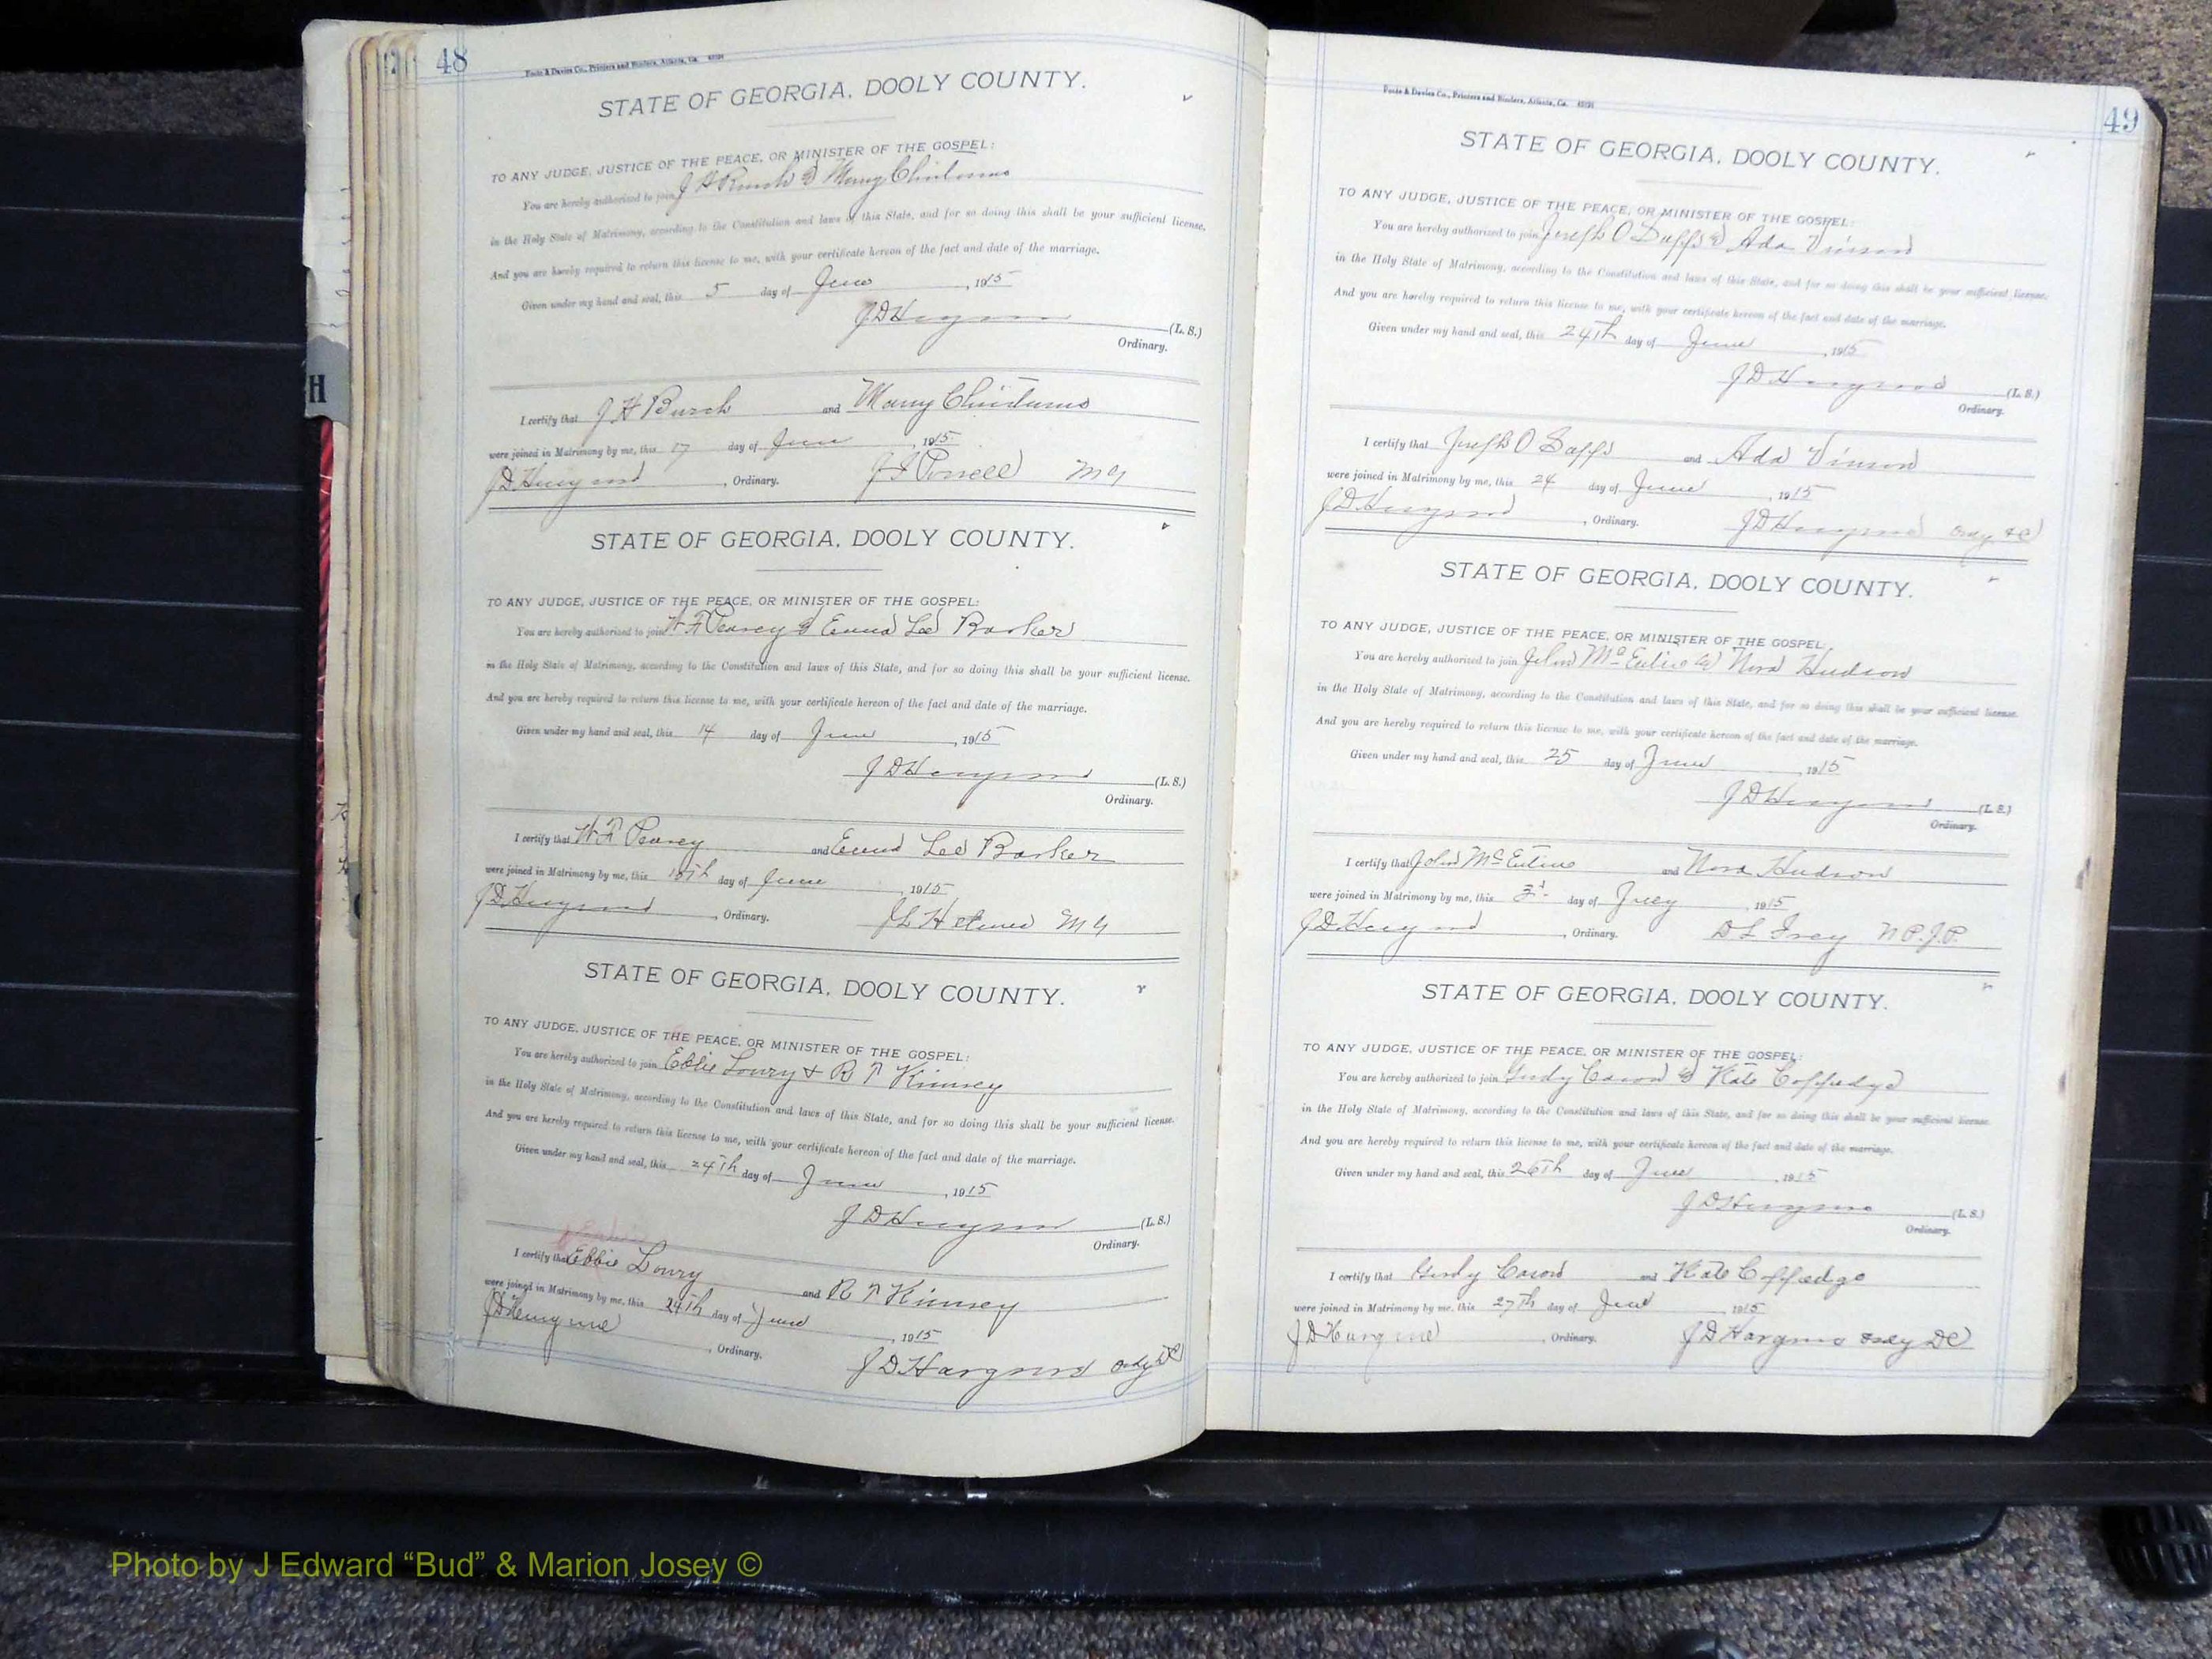 48
Foote & Davies Co., Printers and Binders, Atlanta, Ga.
STATE OF GEORGIA, DOOLY COUNTY.
TO ANY JUDGE, JUSTICE OF THE PEACE, OR MINISTER OF THE GOSPEL:
You are hereby authorized to join J H Burch & Mary
in the Holy State of Matrimony, according to the Constitution and laws of this State, and for so doing this shall be your sufficient license.
And you are hereby required to return this license to me, with your certificate hereon of the fact and date of the marriage.
Given under my hand and seal, this 5 day of June, 1915
J D Hargrove (L. S.)
Ordinary.
I certify that J H Burch and Mary
were joined in Matrimony by me, this day of June, 1915
J D Hargrove, Ordinary. Powell M G
STATE OF GEORGIA, DOOLY COUNTY.
TO ANY JUDGE, JUSTICE OF THE PEACE, OR MINISTER OF THE GOSPEL:
You are hereby authorized to join W F Peavey & Emma Lee Barker
in the Holy State of Matrimony, according to the Constitution and laws of this State, and for so doing this shall be your sufficient license.
And you are hereby required to return this license to me, with your certificate hereon of the fact and date of the marriage.
Given under my hand and seal, this 14 day of June, 1915
J D Hargrove (L. S.)
Ordinary.
I certify that W F Peavey and Emma Lee Barker
were joined in Matrimony by me, this day of June, 1915
J D Hargrove, Ordinary. M G
STATE OF GEORGIA, DOOLY COUNTY.
TO ANY JUDGE, JUSTICE OF THE PEACE, OR MINISTER OF THE GOSPEL:
You are hereby authorized to join Ebbie Lowry & R T Kimsey
in the Holy State of Matrimony, according to the Constitution and laws of this State, and for so doing this shall be your sufficient license.
And you are hereby required to return this license to me, with your certificate hereon of the fact and date of the marriage.
Given under my hand and seal, this 24th day of June, 1915
J D Hargrove (L. S.)
Ordinary.
I certify that Ebbie Lowry and R T Kimsey
were joined in Matrimony by me, this 24th day of June, 1915
J D Hargrove, Ordinary. J D Hargrove Ordy D C
49
Foote & Davies Co., Printers and Binders, Atlanta, Ga.
STATE OF GEORGIA, DOOLY COUNTY.
TO ANY JUDGE, JUSTICE OF THE PEACE, OR MINISTER OF THE GOSPEL:
You are hereby authorized to join Joseph O Sapps & Ada Vinson
in the Holy State of Matrimony, according to the Constitution and laws of this State, and for so doing this shall be your sufficient license.
And you are hereby required to return this license to me, with your certificate hereon of the fact and date of the marriage.
Given under my hand and seal, this 24th day of June, 1915
J D Hargrove (L. S.)
Ordinary.
I certify that Joseph O Sapps and Ada Vinson
were joined in Matrimony by me, this 24 day of June, 1915
J D Hargrove, Ordinary. J D Hargrove Ordy D C
STATE OF GEORGIA, DOOLY COUNTY.
TO ANY JUDGE, JUSTICE OF THE PEACE, OR MINISTER OF THE GOSPEL:
You are hereby authorized to join John & Nora Hudson
in the Holy State of Matrimony, according to the Constitution and laws of this State, and for so doing this shall be your sufficient license.
And you are hereby required to return this license to me, with your certificate hereon of the fact and date of the marriage.
Given under my hand and seal, this 25 day of June, 1915
J D Hargrove (L. S.)
Ordinary.
I certify that John and Nora Hudson
were joined in Matrimony by me, this 3d day of July, 1915
J D Hargrove, Ordinary. D L Frey N P. J. P.
STATE OF GEORGIA, DOOLY COUNTY.
TO ANY JUDGE, JUSTICE OF THE PEACE, OR MINISTER OF THE GOSPEL:
You are hereby authorized to join & Kate Coffedge
in the Holy State of Matrimony, according to the Constitution and laws of this State, and for so doing this shall be your sufficient license.
And you are hereby required to return this license to me, with your certificate hereon of the fact and date of the marriage.
Given under my hand and seal, this 26th day of June, 1915
J D Hargrove (L. S.)
Ordinary.
I certify that and Kate Coffedge
were joined in Matrimony by me, this 27th day of June, 1915
J D Hargrove, Ordinary. J D Hargrove Ordy D C
H
Photo by J Edward “Bud” & Marion Josey ©